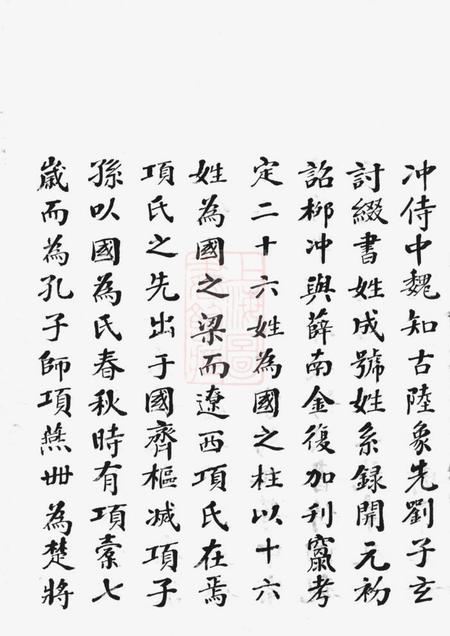 冲侍中魏知古陸象先劉子玄
討綴書姓成號姓系録開元初
詔柳冲與薛南金復加刊竄考
定二十六姓為國之柱以十六
姓為國之梁而遼西項氏在焉
項氏之先出于國齊樞减項子
孫以國為氏春秋時有項橐七
歳而為孔子師項燕丗為楚將